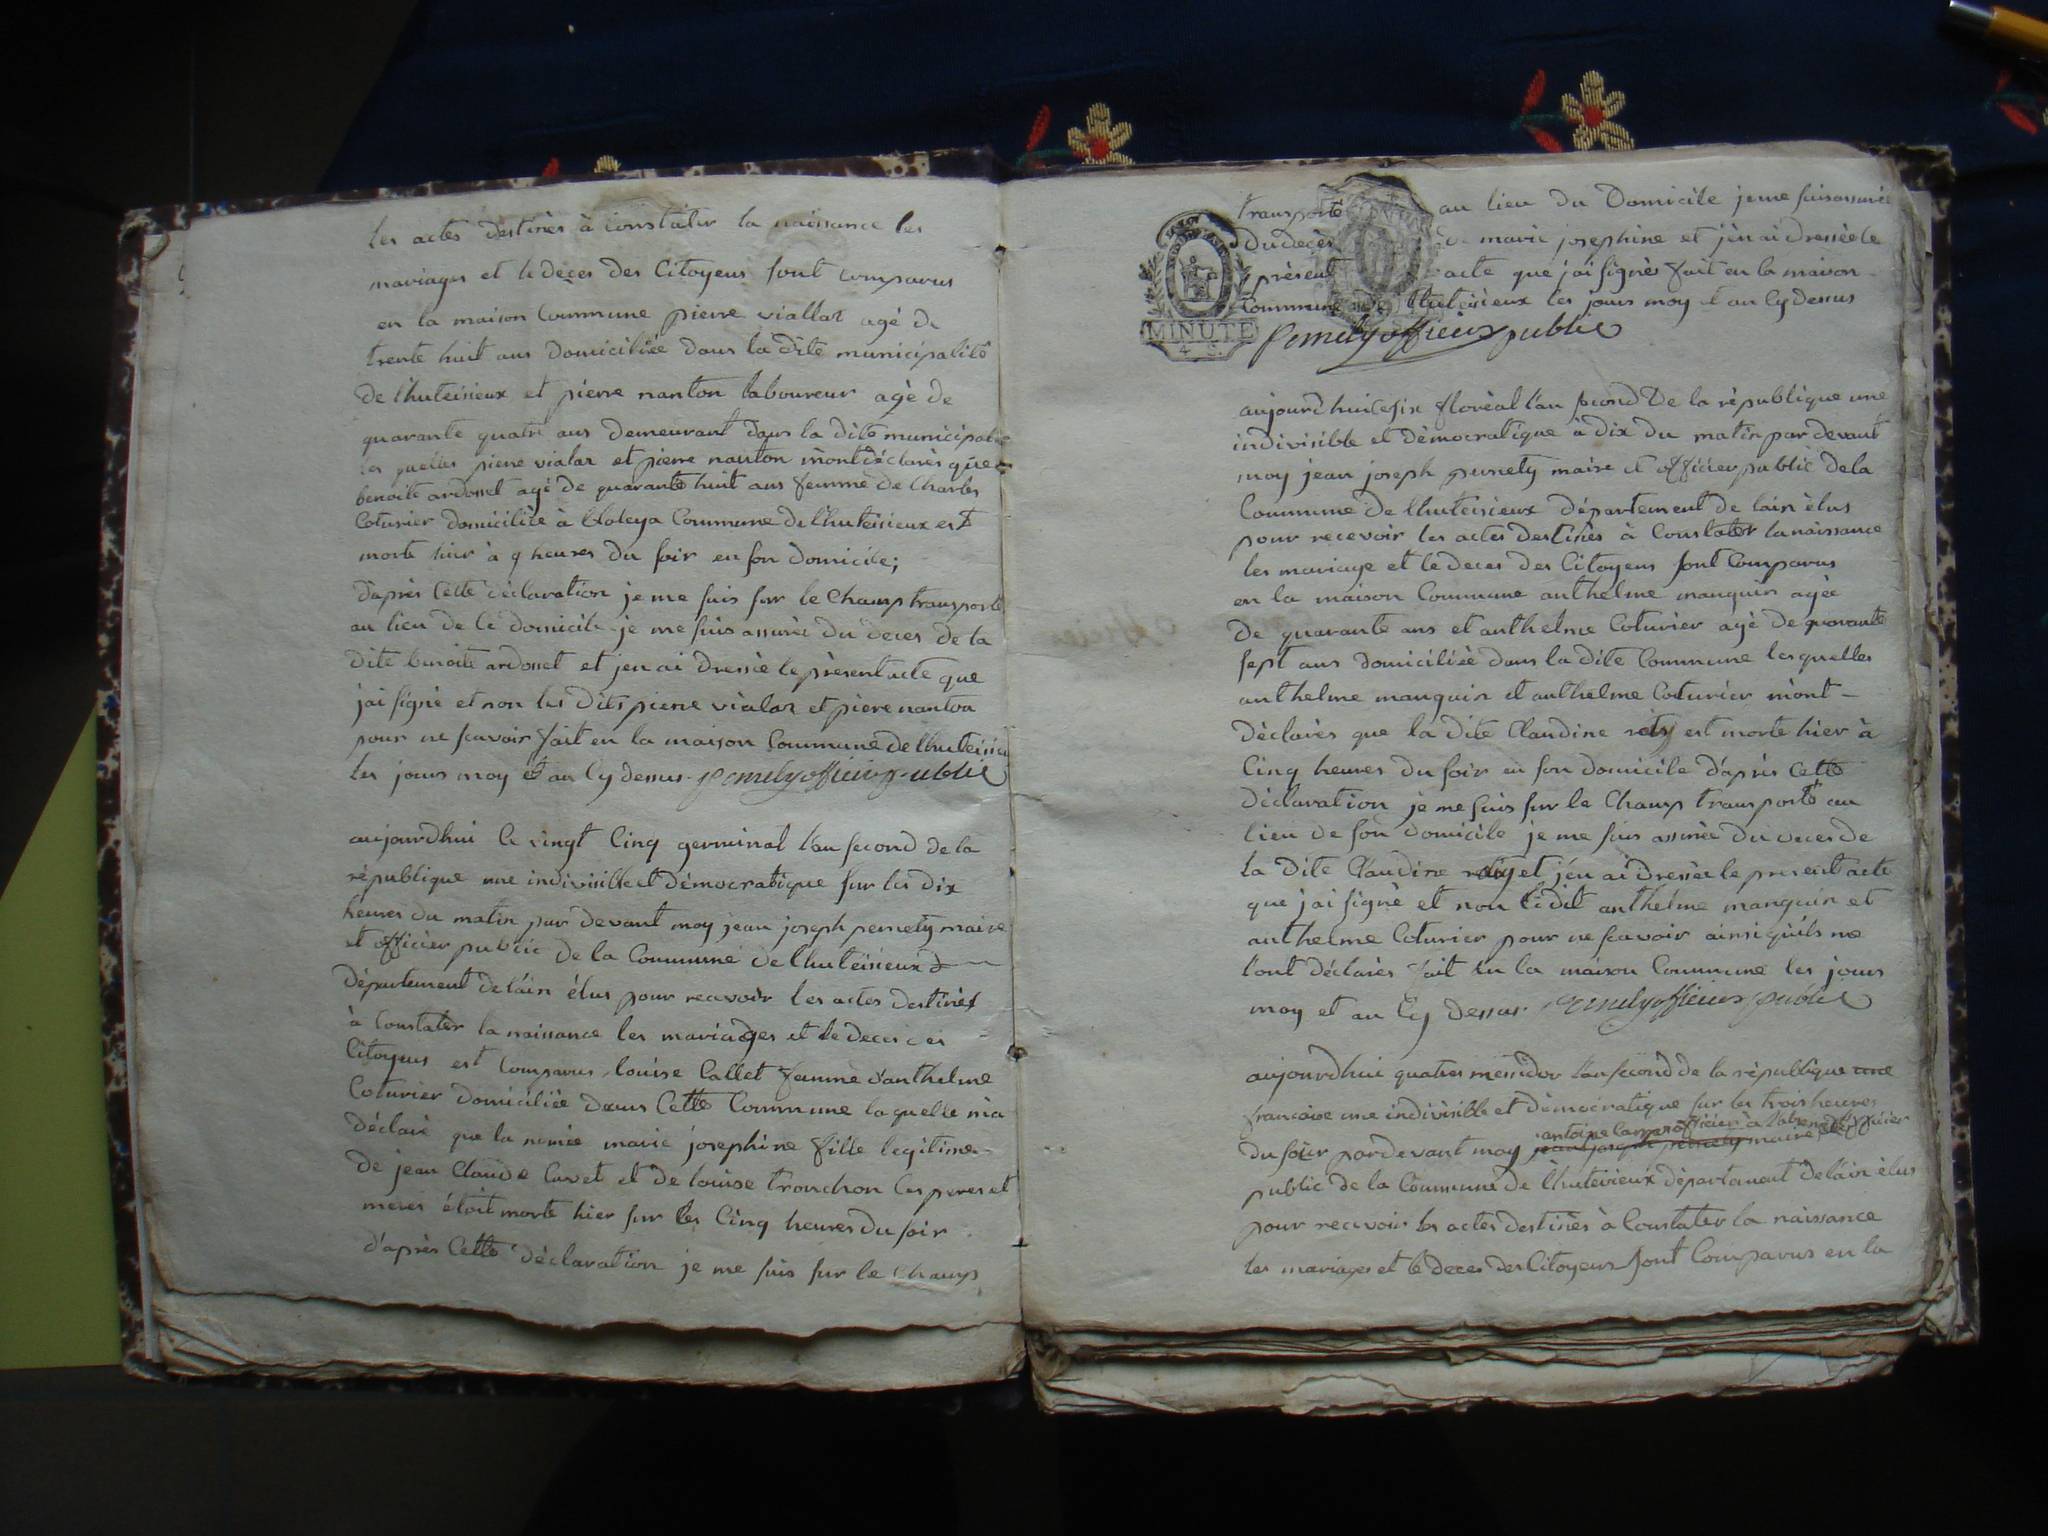 les actes destinès à constater la naissance les
mariages et le dèces des Citoyens sont comparus
en la maison Commune pierre viallat agé de
trente huit ans domiciliée dans la dite municipalité
de lhuteisieux et pierre nanton laboureur agè de
quarante quatre ans demeurant dans la dite municipalité
les quelles pierre vialar et pierre nanton m'ont déclarès que
benoite ardosset agé de quarante huit ans femme de Charles
Coturier domiciliée à Commune de lhuteisieux est
morte hier à 9 heures du soir en son domicile;
d'aprés Cette déclaration je me suis sur le Champ transporté
au lieu de le domicile je me suis assurée du deces de la
dite benoite ardosset et jen ai dressée le prèsent acte que
jai signé et non les dits pierre vialar et piere nanton
pour ne scavoir fait en la maison Commune de lhuteisieux
les jours moy et an Cy dessus pernety officier public
aujourdhui le vingt Cinq germinal l'an second de la
république une indivisible et démocratique sur les dix
heures du matin par devant moy jean joseph pernety maire
et officier public de la Commune de lhuteisieux
département de láin élus pour recevoir les actes destinès
à Constater la naissance les mariages et le deces des
Citoyens est Comparus louise Callet femme d'anthelme
Coturier domiciliée dans Cette Commune laquelle m'a
déclaré que la nomée marie josephine fille legitime
de jean Claude Curet et de louise tronchon les peres et
meres étoit morte hier sur les Cinq heures du soir
d'aprés Cette déclaration je me suis sur le Champ
transporté au lieu du Domicile je me suis assurée
du decès de marie josephine et j'en ai dressée le
présent acte que jai signès fait en la maison
Commune de lhuteisieux les jours moy et an Cy dessus
MINUTE
pernety officier public
aujourdhui le six floréal l'an second de la rèpublique une
indivisible et dèmocratique à dix du matin par devant
moy jean joseph pernety maire et officier public de la
Commune de lhuteisieux département de lain èlus
pour recevoir les actes destinès à Constater la naissance
les mariage et le deces des Citoyens sont Comparus
en la maison Commune anthelme manquin agée
de quarante ans et anthelme Coturier agè de quarante
sept ans domiciliée dans la dite Commune lesquelles
anthelme manquin et anthelme Coturier m'ont
dèclarès que la dite Claudine est morte hier à
Cinq heures du soir en son domicile d'aprés Cette
dèclaration je me suis sur le Champ transporté au
lieu de son domicile je me suis assurée du deces de
la dite Claudine et jén ai dressée le present acte
que jai signè et non le dit anthelme manquin et
anthelme Coturier pour ne scavoir ainsi quils me
l'ont déclarès fait en la maison Commune les jours
moy et an Cy dessus. pernety officier public
aujourdhui quatres messidor l'an second de la république une
francoise une indivisible et dèmocratique sur les trois heures
antoine officier à l'absence de l'officier
du soir pardevant moy jean joseph pernety maire et officier
public de la Commune de lhuteisieux département de láin èlus
pour recevoir les actes destinès à Constater la naissance
les mariages et le deces des Citoyens sont Comparus en la